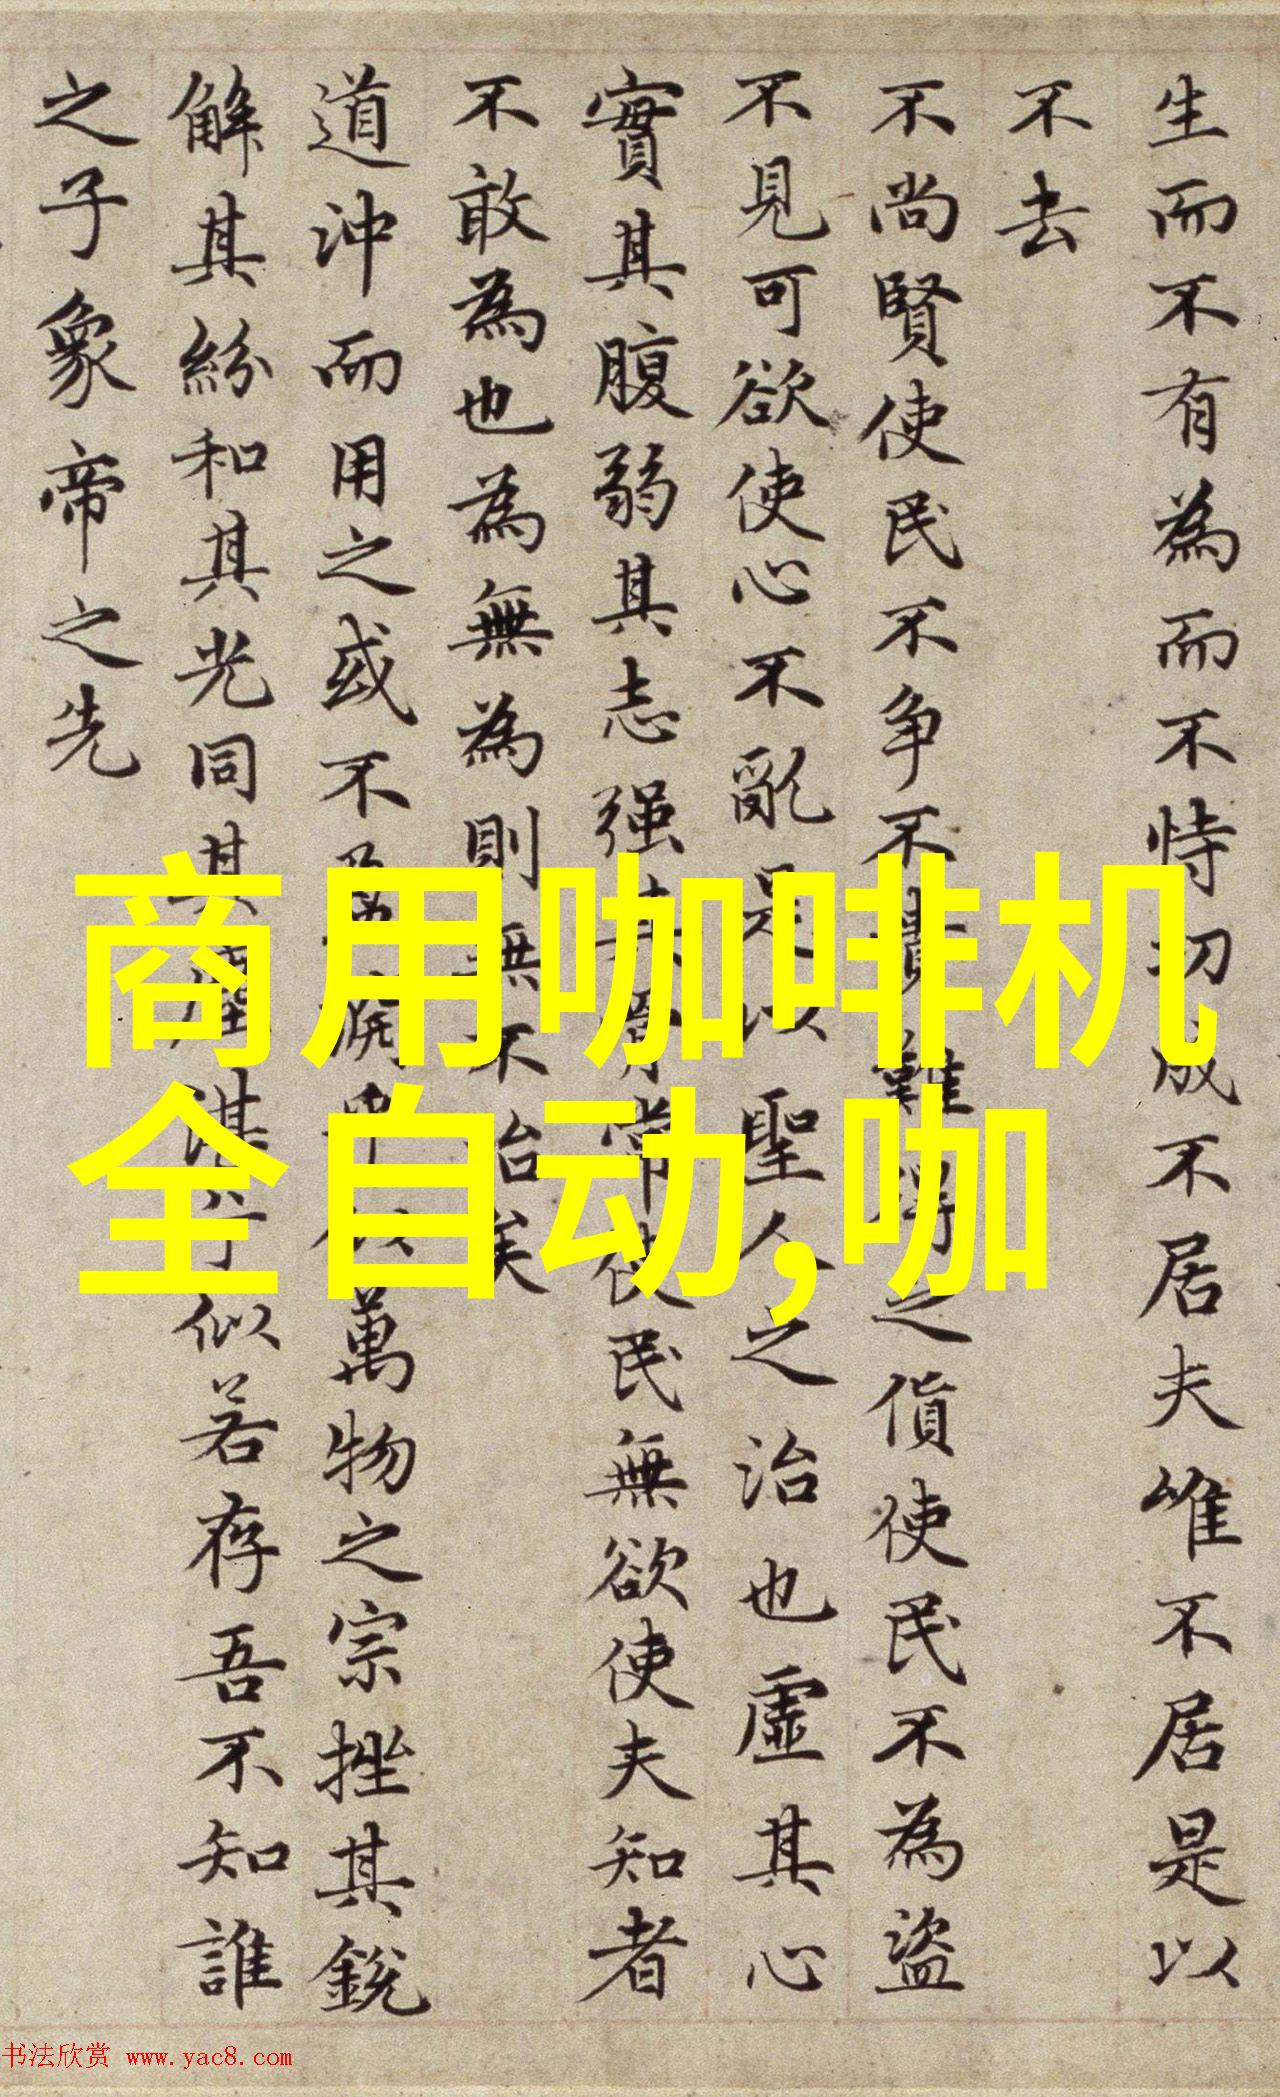 生而不有為而不恃功成不居夫唯不居是以
不去
不尚賢使民不争不貴難得之貨使民不為盜
不見可欲使心不亂是以聖人之治也虛其心
實其腹弱其志强其骨常使民無欲使夫知者
不敢為也為無為則無不治矣
道沖而用之或不盈淵乎似萬物之宗挫其銳
解其紛和其光同其塵湛乎似若存吾不知誰
之子象帝之先
商用咖啡机
全自动,咖
书法欣赏 www.yac8.com